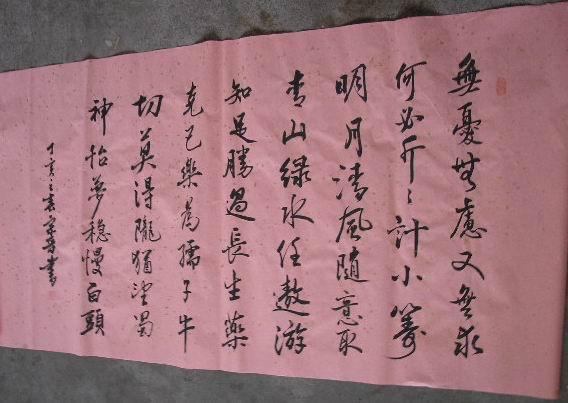 無憂無慮又無求
何必斤斤計小籌
明月清風隨意取
青山緑水任遨游
知足勝過長生藥
克己樂為孺子牛
切莫得隴猶望蜀
神怡夢穩慢白頭
丁亥之春